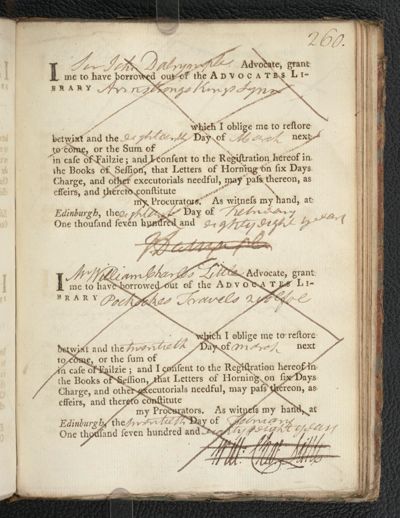 260.
I Sir John Dalrymple Advocate, grant
me to have borrowed out of the ADVOCATES LI-
BRARY Armstrongs Kings Lynn
which I oblige me to restore
betwixt and the eighteenth Day of March next
to come, or the Sum of
in case of Failzie; and I consent to the Registration hereof in
the Books of Session, that Letters of Horning on six Days
Charge, and other executorials needful, may pass thereon, as
effeirs, and thereto constitute
my Procurators. As witness my hand, at
Edinburgh, the eighteenth Day of February
One thousand seven hundred and eighty eight years
J Dalrymple
I Mr William Charles Little Advocate, grant
me to have borrowed out of the ADVOCATES LI-
BRARY Pocockes Travels 2 vol foe
which I oblige me to restore
betwixt and the twentieth Day of march next
to come, or the sum of
in case of Failzie; and I consent to the Registration hereof in
the Books of Session, that Letters of Horning on six Days
Charge, and other executorials needful, may pass thereon, as
effeirs, and thereto constitute
my Procurators. As witness my hand, at
Edinburgh, the twentieth Day of February
One thousand seven hundred and eighty eight years
Will: Chas: Little